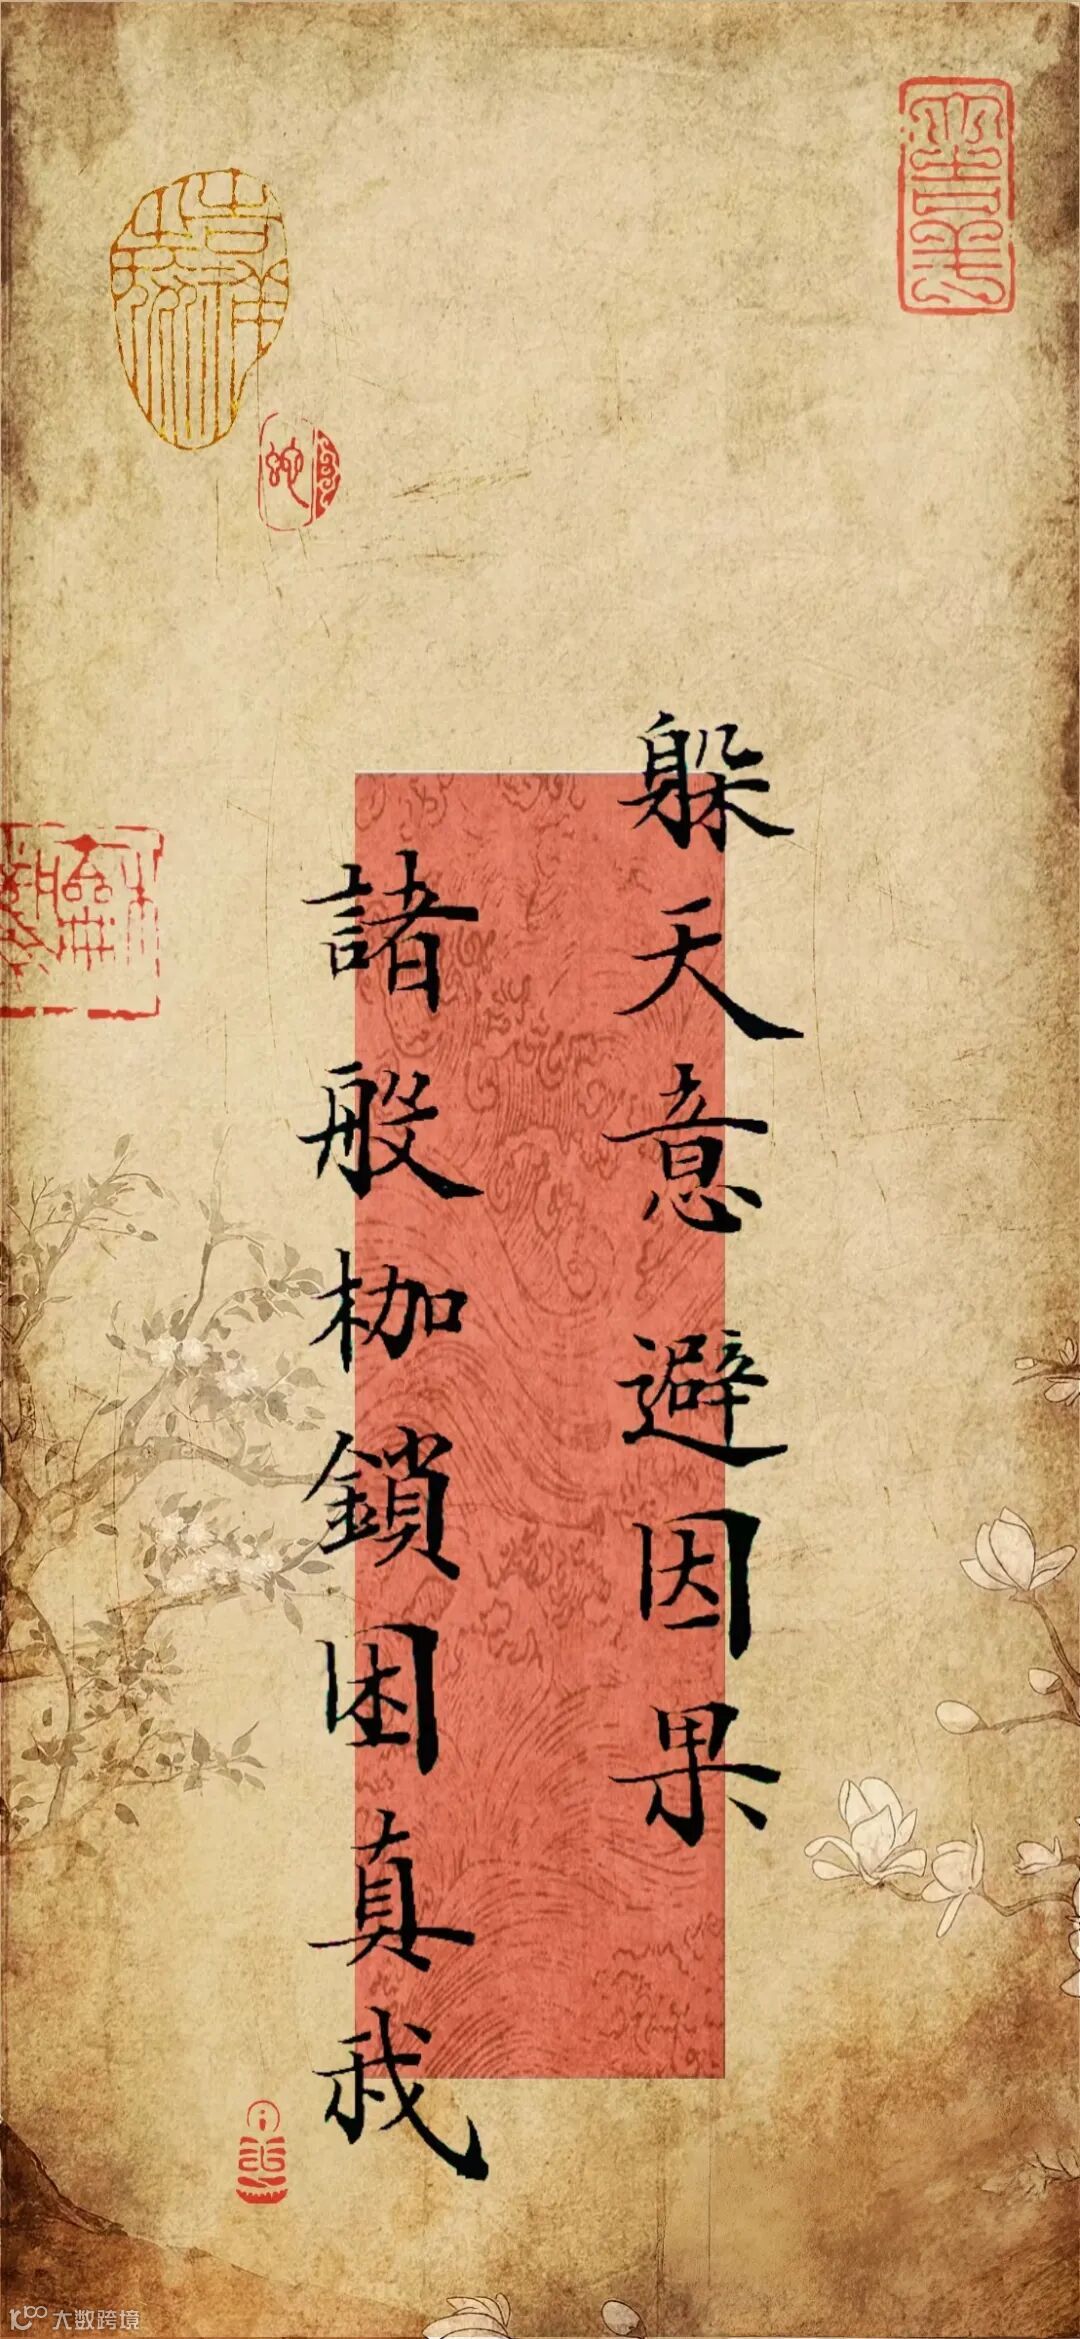 躲天意避因果
諸般枷鎖困真我
大数跨境